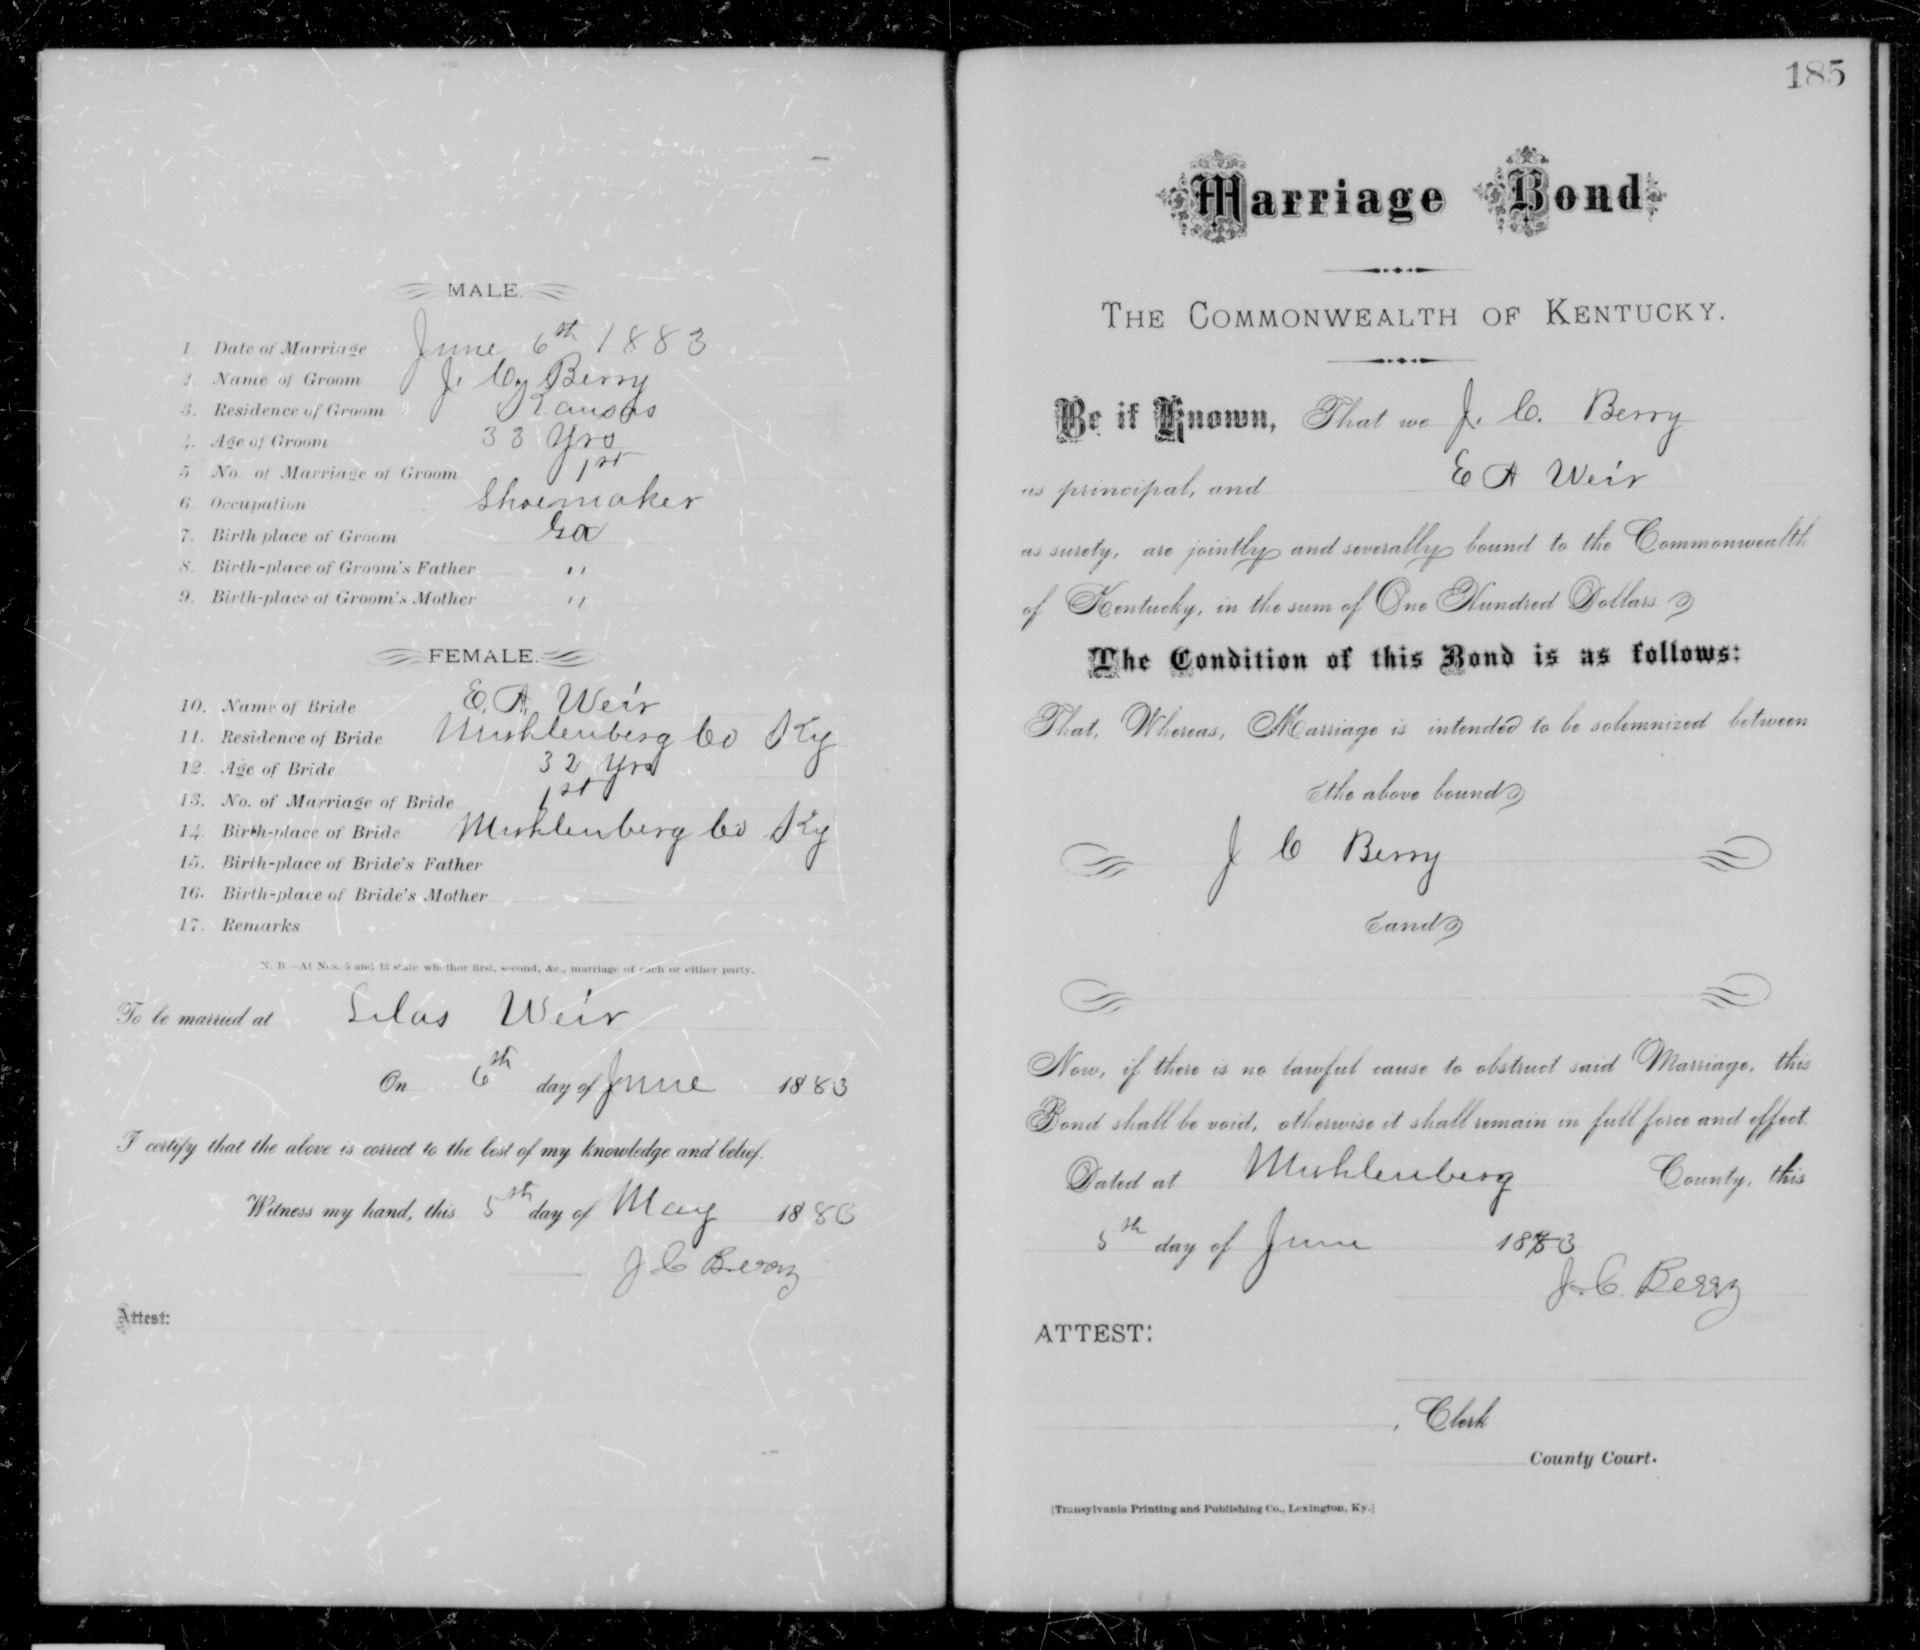 MALE.
1. Date of Marriage June 6th 1883
2. Name of Groom J. Cy Berry
3. Residence of Groom Kansas
4. Age of Groom 33 Yrs
5 No. of Marriage of Groom 1st
6. Occupation Shoemaker
7. Birth-place of Groom Ga
8. Birth-place of Groom's Father "
9. Birth-place of Groom's Mother "
FEMALE.
10. Name of Bride E. A. Weir
11. Residence of Bride Muhlenberg Co Ky
12. Age of Bride 32 Yrs
13. No. of Marriage of Bride 1st
14. Birth-place of Bride Muhlenberg Co Ky
15. Birth-place of Bride's Father
16. Birth-place of Bride's Mother
17. Remarks
N. B—At Nos. 5 and 13 state whether first, second, &c., marriage of each or either party.
To be married at Silas Weir
On 6th day of June 1883
I certify that the above is correct to the best of my knowledge and belief.
Witness my hand, this 5th day of May 1883
J C Berry
Attest:
185
Marriage Bond
THE COMMONWEALTH OF KENTUCKY.
Be it Known, That we J. C. Berry
as principal, and E A Weir
as surety, are jointly and severally bound to the Commonwealth
of Kentucky, in the sum of One Hundred Dollars.
The Condition of this Bond is as follows:
That, Whereas, Marriage is intended to be solemnized between
the above bound
J C Berry
and
Now, if there is no lawful cause to obstruct said Marriage, this
Bond shall be void, otherwise it shall remain in full force and effect.
Dated at Muhlenberg County, this
5th day of June 1883
J. C. Berry
ATTEST:
, Clerk
County Court.
[Transylvania Printing and Publishing Co., Lexington, Ky.]